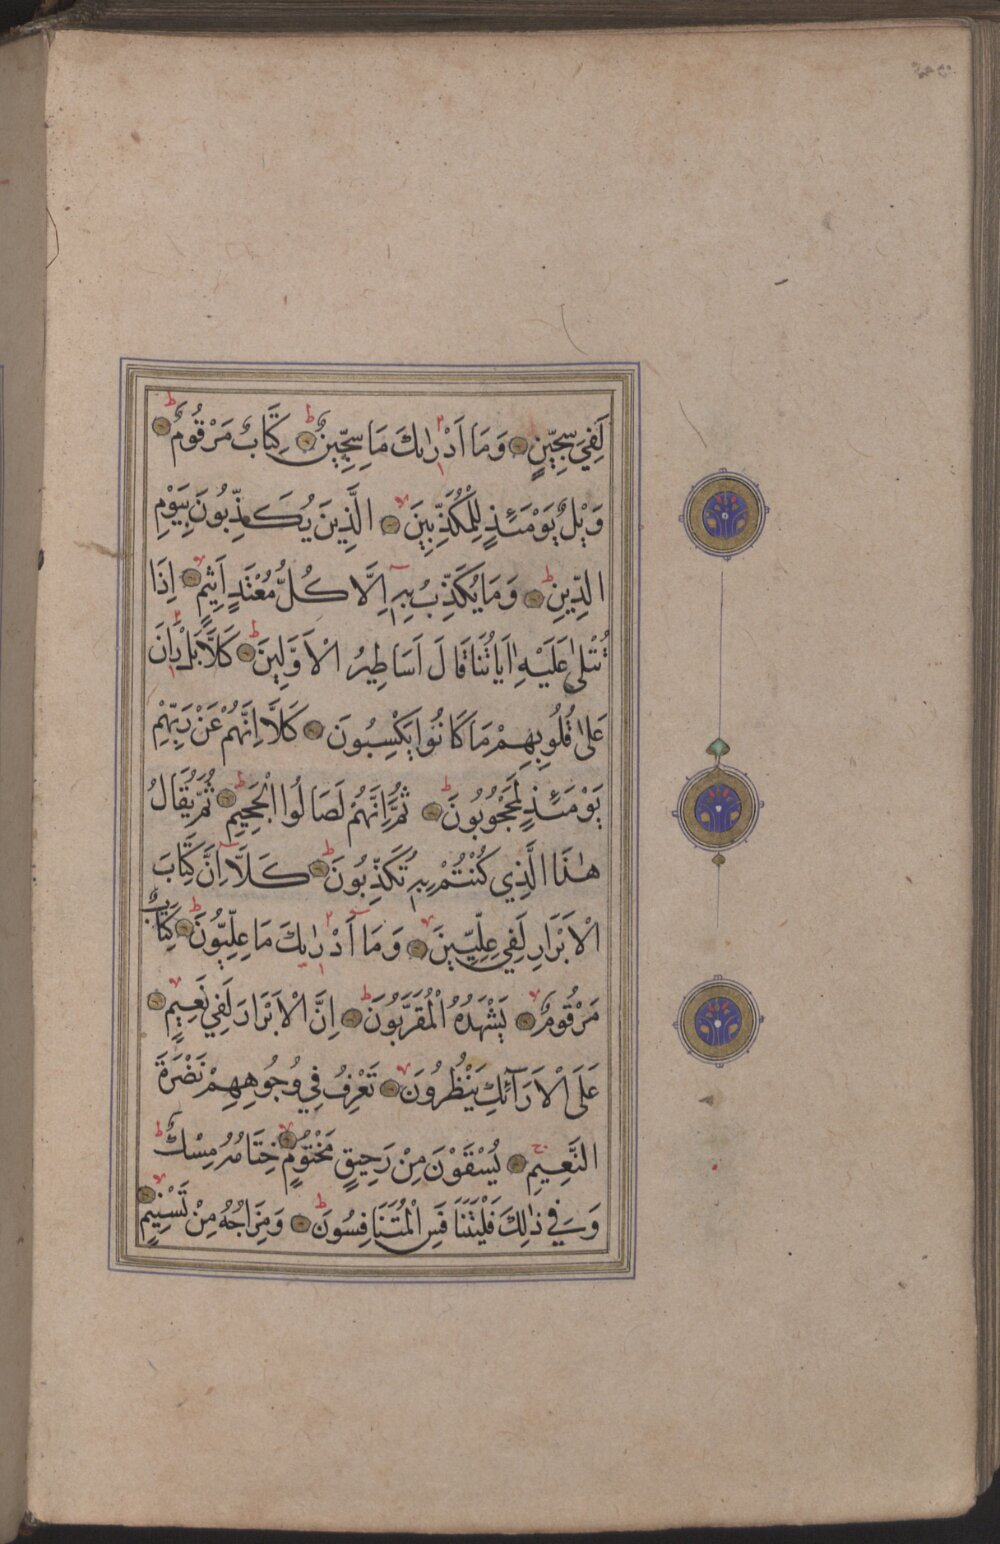 لَفِي سِجِّينٍ وَمَا اَدْرٰىكَ مَا سِجِّينٌ كِتَابٌ مَرْقُومٌ
وَيْلٌ يَوْمَئِذٍ لِلْمُكَذِّبِينَ الَّذِينَ يُكَذِّبُونَ بِيَوْمِ
الدِّينِ وَمَا يُكَذِّبُ بِهِ اِلَّا كُلُّ مُعْتَدٍ اَثِيمٍ اِذَا
تُتْلٰى عَلَيْهِ اٰيَاتُنَا قَالَ اَسَاطِيرُ الْاَوَّلِينَ كَلَّا بَلْ رَانَ
عَلٰى قُلُوبِهِمْ مَا كَانُوا يَكْسِبُونَ كَلَّا اِنَّهُمْ عَنْ رَبِّهِمْ
يَوْمَئِذٍ لَمَحْجُوبُونَ ثُمَّ اِنَّهُمْ لَصَالُوا الْجَحِيمِ ثُمَّ يُقَالُ
هٰذَا الَّذِي كُنْتُمْ بِهِ تُكَذِّبُونَ كَلَّا اِنَّ كِتَابَ
الْاَبْرَارِ لَفِي عِلِّيِّينَ وَمَا اَدْرٰىكَ مَا عِلِّيُّونَ كِتَابٌ
مَرْقُومٌ يَشْهَدُهُ الْمُقَرَّبُونَ اِنَّ الْاَبْرَارَ لَفِي نَعِيمٍ
عَلَى الْاَرَآئِكِ يَنْظُرُونَ تَعْرِفُ فِي وُجُوهِهِمْ نَضْرَةَ
النَّعِيمِ يُسْقَوْنَ مِنْ رَحِيقٍ مَخْتُومٍ خِتَامُهُ مِسْكٌ
وَفِي ذٰلِكَ فَلْيَتَنَافَسِ الْمُتَنَافِسُونَ وَمِزَاجُهُ مِنْ تَسْنِيمٍ